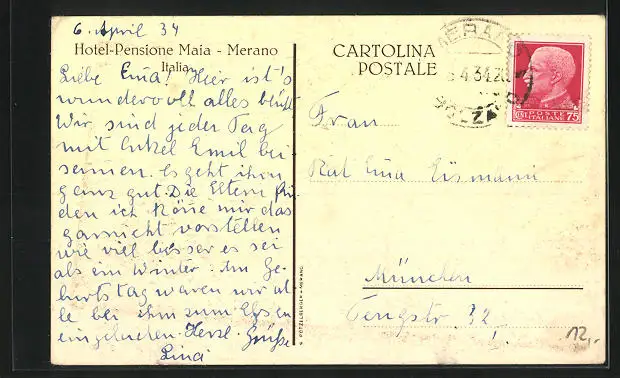 6. April 34
Hotel-Pensione Maia - Merano
Italia
Liebe Ema! Hier ist's
wundervoll alles blüht
Wir sind jeden Tag
mit Onkel Emil bei
sammen. Es geht ihm
ganz gut. Die Eltern fin
den ich könne mir das
garnicht vorstellen
wie viel besser es sei
als im Winter. Am Ge-
burtstag waren wir al
le bei ihm zum Essen
eingeladen. Herzl. Grüße
CARTOLINA
POSTALE
MERANO
4.34.20
BOLZANO
POSTE
ITALIANE
75
Frau
Rat Ema Eismann
München
Tengstr. 32
12,-